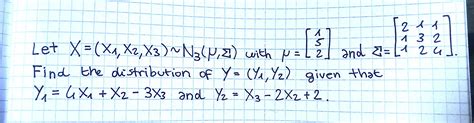 Let X=(X₁,X₂,X₃)~N₃(μ,Σ) with μ=[1 5 2] and Σ=[2 1 1; 1 3 2; 1 2 4].
Find the distribution of Y=(Y₁,Y₂) given that
Y₁=4X₁+X₂-3X₃ and Y₂=X₃-2X₂+2.